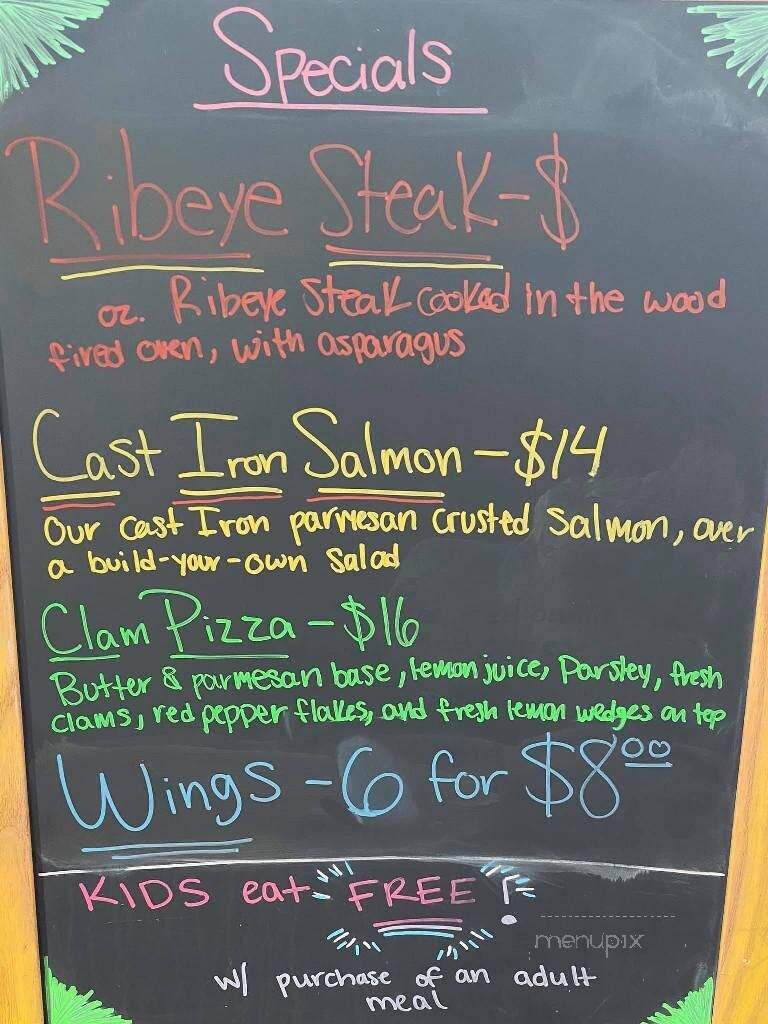 Specials
Ribeye Steak-$
oz. Ribeye Steak cooked in the wood
fired oven, with asparagus
Cast Iron Salmon-$14
Our cast Iron parmesan crusted Salmon, over
a build-your-own Salad
Clam Pizza-$16
Butter & parmesan base, lemon juice, Parsley, fresh
clams, red pepper flakes, and fresh lemon wedges on top
Wings-6 for $8.00
KIDS eat FREE!
menupix
w/ purchase of an adult
meal